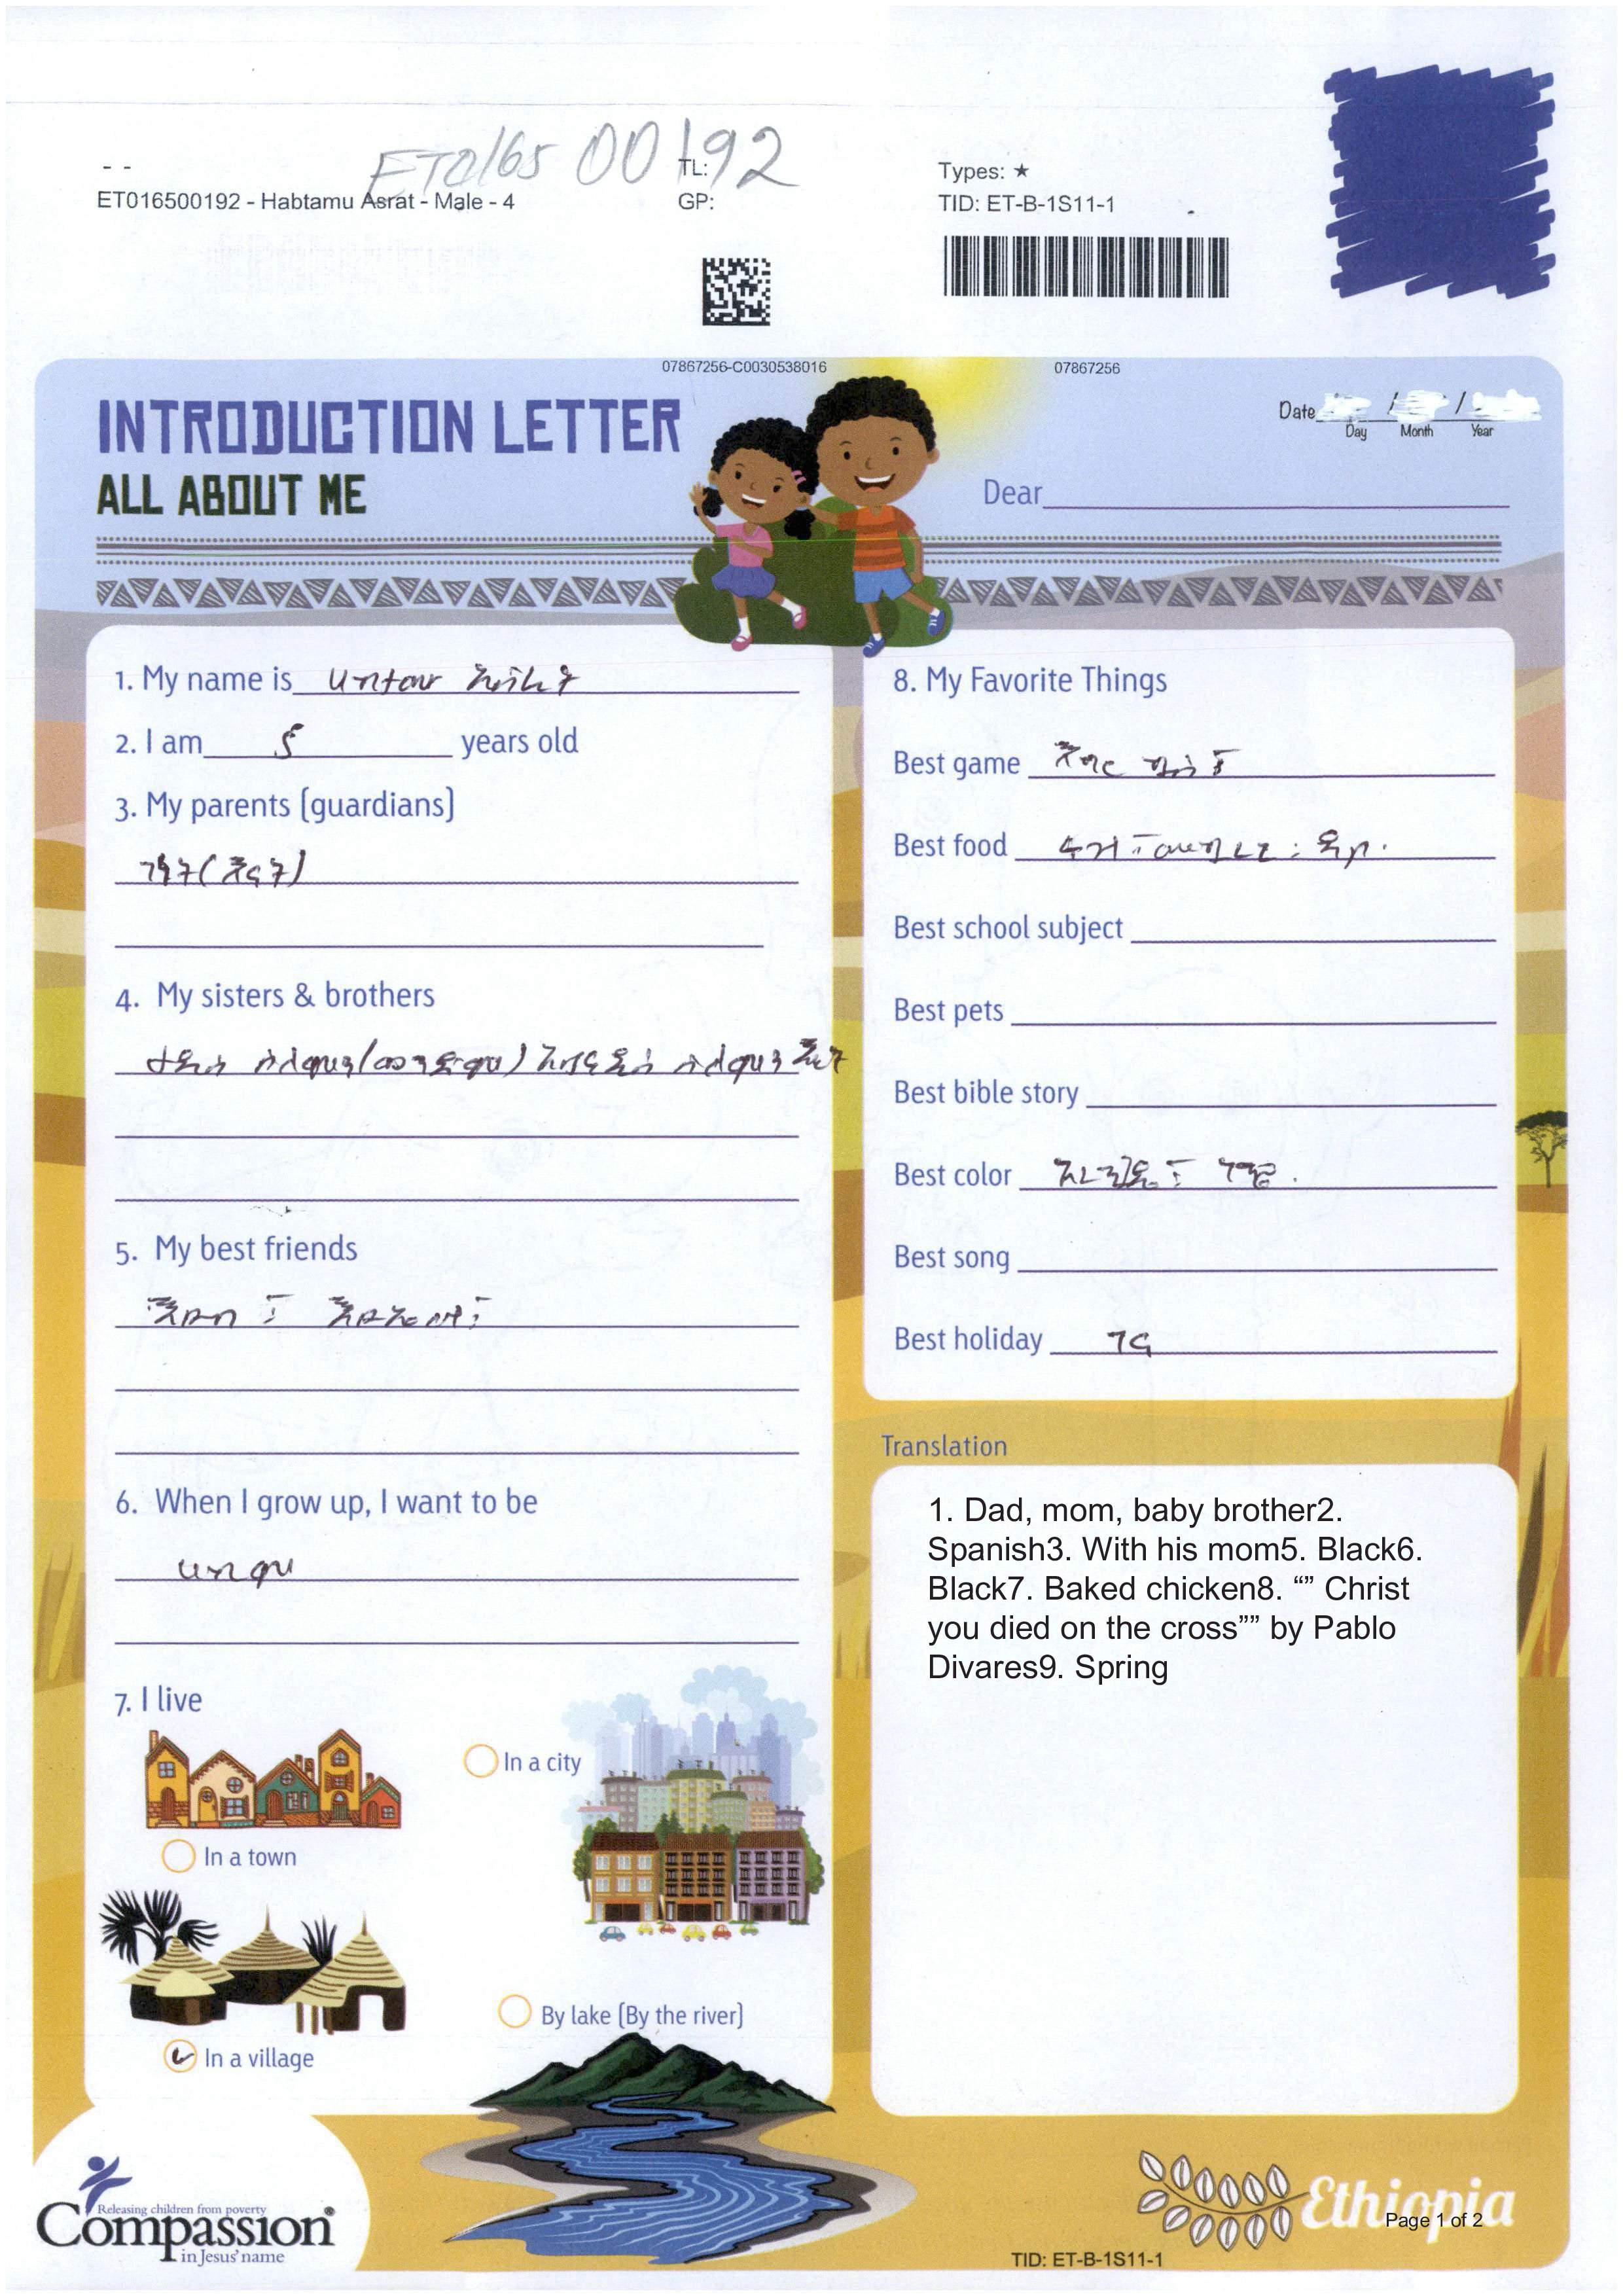 ET016500192
- -
TL:
Types: ★
ET016500192 - Habtamu Asrat - Male - 4
GP:
TID: ET-B-1S11-1
07867256-C0030538016
07867256
INTRODUCTION LETTER
ALL ABOUT ME
Date / /
Day Month Year
Dear
1. My name is ሀብታሙ
2. I am 5 years old
3. My parents (guardians)
4. My sisters & brothers
5. My best friends
6. When I grow up, I want to be
ሀኪም
7. I live
In a city
In a town
By lake (By the river)
In a village
8. My Favorite Things
Best game
Best food
Best school subject
Best pets
Best bible story
Best color
Best song
Best holiday ገና
Translation
1. Dad, mom, baby brother2.
Spanish3. With his mom5. Black6.
Black7. Baked chicken8. “” Christ
you died on the cross”” by Pablo
Divares9. Spring
Releasing children from poverty
Compassion®
in Jesus' name
Ethiopia
Page 1 of 2
TID: ET-B-1S11-1